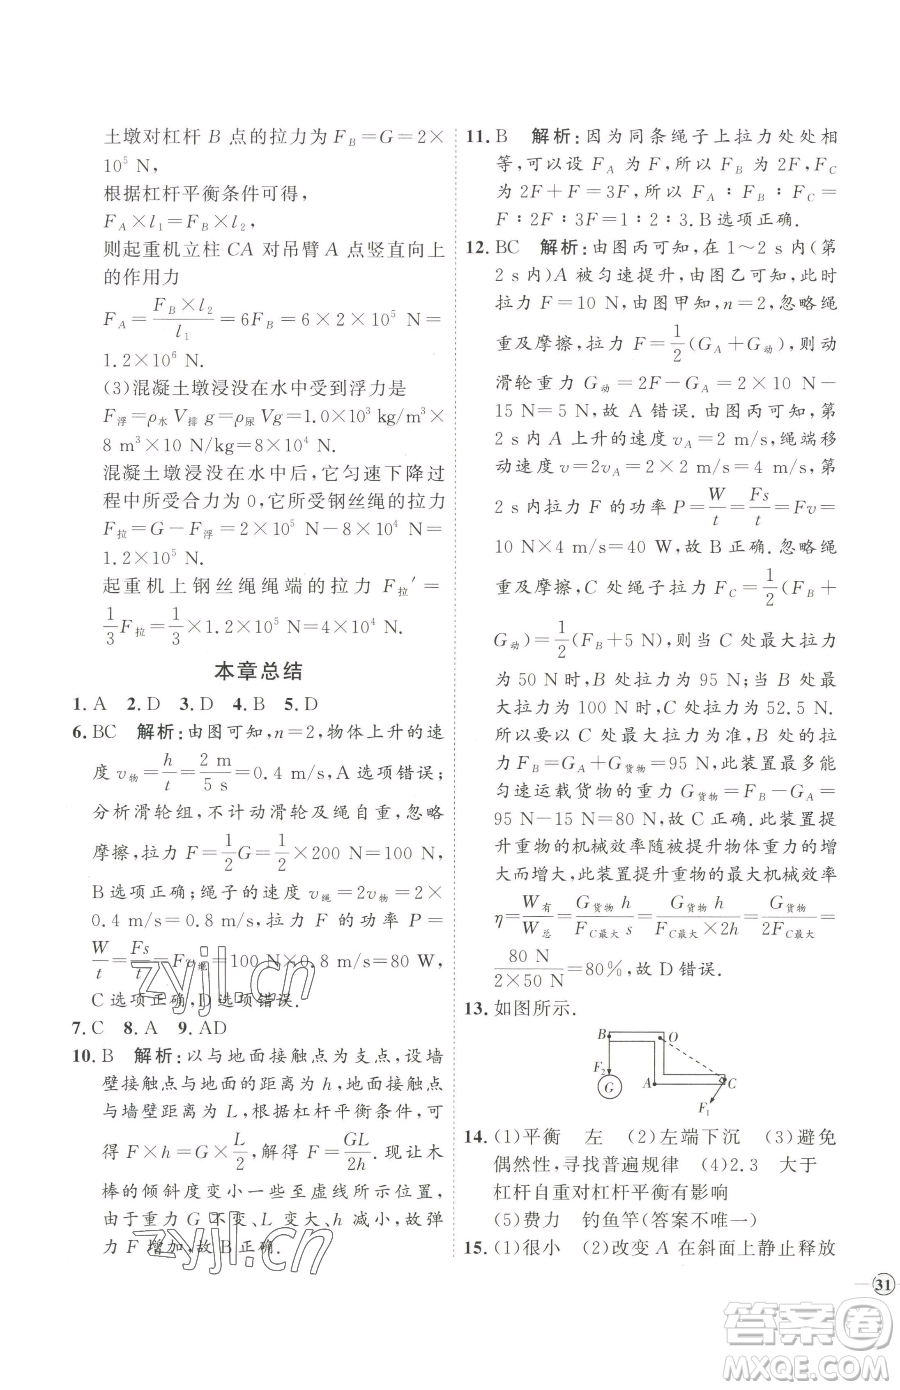 土墩对杠杆 B 点的拉力为 F_B=G=2×
10⁵ N.
根据杠杆平衡条件可得,
F_A×l₁=F_B×l₂,
则起重机立柱 CA 对吊臂 A 点竖直向上
的作用力
F_A=(F_B×l₂)/l₁=6F_B=6×2×10⁵ N=
1.2×10⁶ N.
(3)混凝土墩浸没在水中受到浮力是
F浮=ρ水 V排 g=ρ尿 Vg=1.0×10³ kg/m³×
8 m³×10 N/kg=8×10⁴ N.
混凝土墩浸没在水中后,它匀速下降过
程中所受合力为 0,它所受钢丝绳的拉力
F拉=G-F浮=2×10⁵ N-8×10⁴ N=
1.2×10⁵ N.
起重机上钢丝绳绳端的拉力 F拉′=
1/3 F拉=1/3×1.2×10⁵ N=4×10⁴ N.
本章总结
1. A 2. D 3. D 4. B 5. D
6. BC 解析:由图可知,n=2,物体上升的速
度 v物=h/t=2 m/5 s=0.4 m/s,A 选项错误;
分析滑轮组,不计动滑轮及绳自重,忽略
摩擦,拉力 F=1/2 G=1/2×200 N=100 N,
B 选项正确;绳子的速度 v绳=2v物=2×
0.4 m/s=0.8 m/s,拉力 F 的功率 P=
W/t=Fs/t=Fv绳=100 N×0.8 m/s=80 W,
C 选项正确,D 选项错误.
7. C 8. A 9. AD
10. B 解析:以与地面接触点为支点,设墙
壁接触点与地面的距离为 h,地面接触点
与墙壁距离为 L,根据杠杆平衡条件,可
得 F×h=G×L/2,解得 F=GL/2h.现让木
棒的倾斜度变小一些至虚线所示位置,
由于重力 G 不变、L 变大、h 减小,故弹
力 F 增加,故 B 正确.
11. B 解析:因为同条绳子上拉力处处相
等,可以设 F_A 为 F,所以 F_B 为 2F,F_C
为 2F+F=3F,所以 F_A∶F_B∶F_C=
F∶2F∶3F=1∶2∶3.B 选项正确.
12. BC 解析:由图丙可知,在 1~2 s 内(第
2 s 内)A 被匀速提升,由图乙可知,此时
拉力 F=10 N,由图甲知,n=2,忽略绳
重及摩擦,拉力 F=1/2(G_A+G动),则动
滑轮重力 G动=2F-G_A=2×10 N-
15 N=5 N,故 A 错误.由图丙可知,第
2 s 内 A 上升的速度 v_A=2 m/s,绳端移
动速度 v=2v_A=2×2 m/s=4 m/s,第
2 s 内拉力 F 的功率 P=W/t=Fs/t=Fv=
10 N×4 m/s=40 W,故 B 正确.忽略绳
重及摩擦,C 处绳子拉力 F_C=1/2(F_B+
G动)=1/2(F_B+5 N),则当 C 处最大拉力
为 50 N 时,B 处拉力为 95 N;当 B 处最大
拉力为 100 N 时,C 处拉力为 52.5 N.
所以要以 C 处最大拉力为准,故 B 处拉
力 F_B=G_A+G货物=95 N,此装置最多能
匀速运载货物的重力 G货物=F_B-G_A=
95 N-15 N=80 N,故 C 正确.此装置提
升重物的机械效率随重物体重力的增
大而增大,此装置提升重物的最大机械效率
η=W有/W总=G货物 h/F_C最大 s=G货物 h/(F_C最大×2h)=G货物/2F_C最大=
80 N/(2×50 N)=80%,故 D 错误.
13. 如图所示.
B O
F₂
G A C
F₁
14. (1)平衡 左 (2)左端下沉 (3)避免
偶然性,寻找普遍规律 (4)2.3 大于
杠杆自重对杠杆平衡有影响
(5)费力 钓鱼竿(答案不唯一)
15. (1)很小 (2)改变 A 在斜面上静止释放
31
zyjl.cn
zyjl.cn
答案圈
MXQE.COM